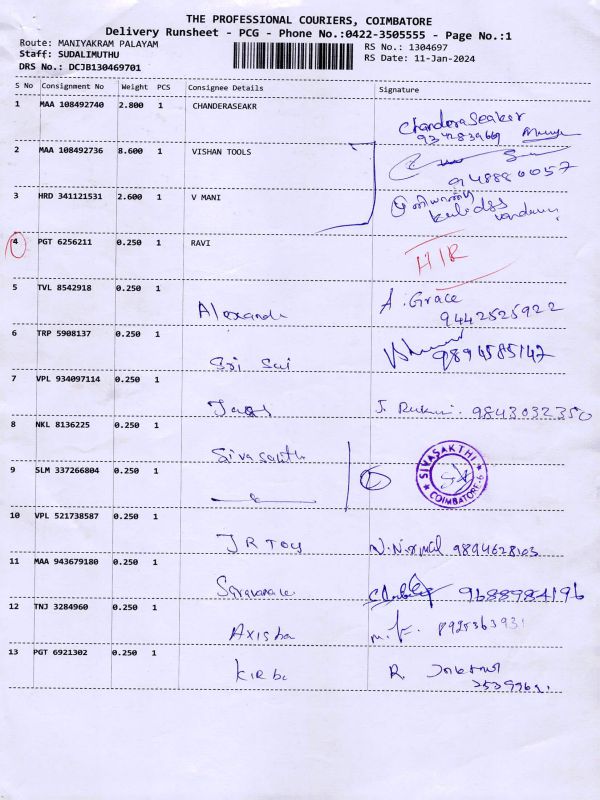 THE PROFESSIONAL COURIERS, COIMBATORE
Delivery Runsheet - PCG - Phone No.:0422-3505555 - Page No.:1
Route: MANIYAKRAM PALAYAM RS No.: 1304697
Staff: SUDALIMUTHU RS Date: 11-Jan-2024
DRS No.: DCJB130469701
S No Consignment No Weight PCS Consignee Details Signature
1 MAA 108492740 2.800 1 CHANDERASEAKR
Chandera Seaker
2 MAA 108492736 8.600 1 VISHAN TOOLS
3 HRD 341121531 2.600 1 V MANI
4 PGT 6256211 0.250 1 RAVI
H/R
5 TVL 8542918 0.250 1
A. Grace
9442525922
6 TRP 5908137 0.250 1
Sri Sai 9894585147
7 VPL 934097114 0.250 1
J. 9843032350
8 NKL 8136225 0.250 1
9 SLM 337266804 0.250 1
SIVASAKTHI
COIMBATORE-6
10 VPL 521738587 0.250 1
JR Toy N. Nirmal 9894628103
11 MAA 943679180 0.250 1
9688984196
12 TNJ 3284960 0.250 1
Axisha 8925363931
13 PGT 6921302 0.250 1
R.